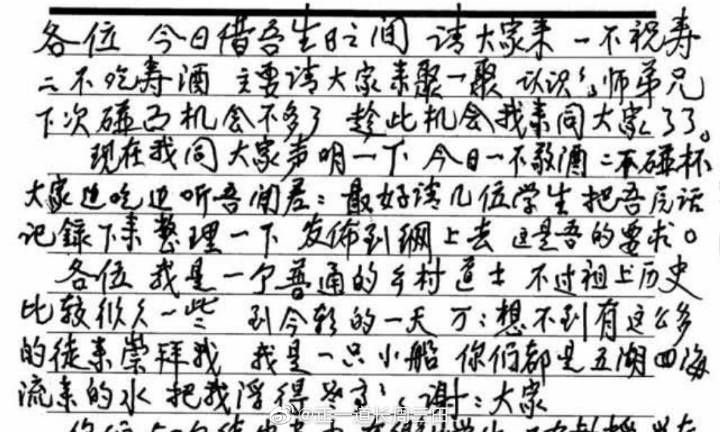 各位 今日借吾生日之间 请大家来 一不祝寿
二不吃寿酒 主要请大家来聚一聚 认识々师弟兄
下次碰面机会不多了 趁此机会我来同大家了了。
现在我同大家声明一下 今日一不敬酒 二不碰杯
大家边吃边听吾闲居：最好请几位学生把吾反话
记録下来整理一下 发佈到網上去 这是吾的要求。
各位 我是一个普通的乡村道士 不过祖上历史
比较悠久一些 到今朝的一天 万：想不到有这么多
的徒来崇拜我 我是一只小船 你们都是五湖四海
流来的水 把我浮得 谢：大家
@正一道长周